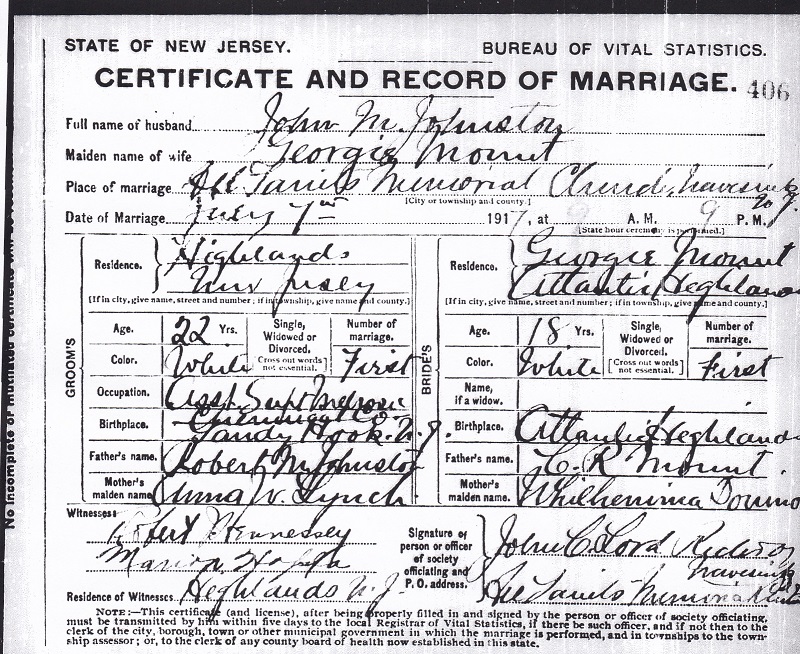 STATE OF NEW JERSEY. BUREAU OF VITAL STATISTICS.
CERTIFICATE AND RECORD OF MARRIAGE. 406
Full name of husband John M. Johnston
Maiden name of wife Georgie Mount
Place of marriage Memorial Church, Navesink
[City or township and county.] N.J.
Date of Marriage July 7 1917, at 9 A. M. 9 P. M.
[State hour ceremony is performed.]
GROOM'S
Residence. Highlands
New Jersey
[If in city, give name, street and number; if in township, give name and county.]
Age. 22 Yrs. Single, Widowed or Divorced. [Cross out words not essential.] Number of marriage. First
Color. White
Occupation. Asst Supt
Birthplace. Sandy Hook. N.J.
Father's name. Robert M. Johnston
Mother's maiden name. Anna V. Lynch
BRIDE'S
Residence. Georgie Mount
Atlantic Highlands
[If in city, give name, street and number; if in township, give name and county.]
Age. 18 Yrs. Single, Widowed or Divorced. [Cross out words not essential.] Number of marriage. First
Color. White
Name, if a widow.
Birthplace. Atlantic Highlands
Father's name. C. R. Mount.
Mother's maiden name. Whilhenima
Witnesses Robert Hennessey
Marion
Residence of Witnesses Highlands N.J.
Signature of person or officer of society officiating and P.O. address. John C. Lord Rector
Navesink
Memorial
NOTE:—This certificate (and license), after being properly filled in and signed by the person or officer of society officiating,
must be transmitted by him within five days to the local Registrar of Vital Statistics, if there be such officer, and if not then to the
clerk of the city, borough, town or other municipal government in which the marriage is performed, and in townships to the town-
ship assessor; or, to the clerk of any county board of health now established in this state.
No incomplete or